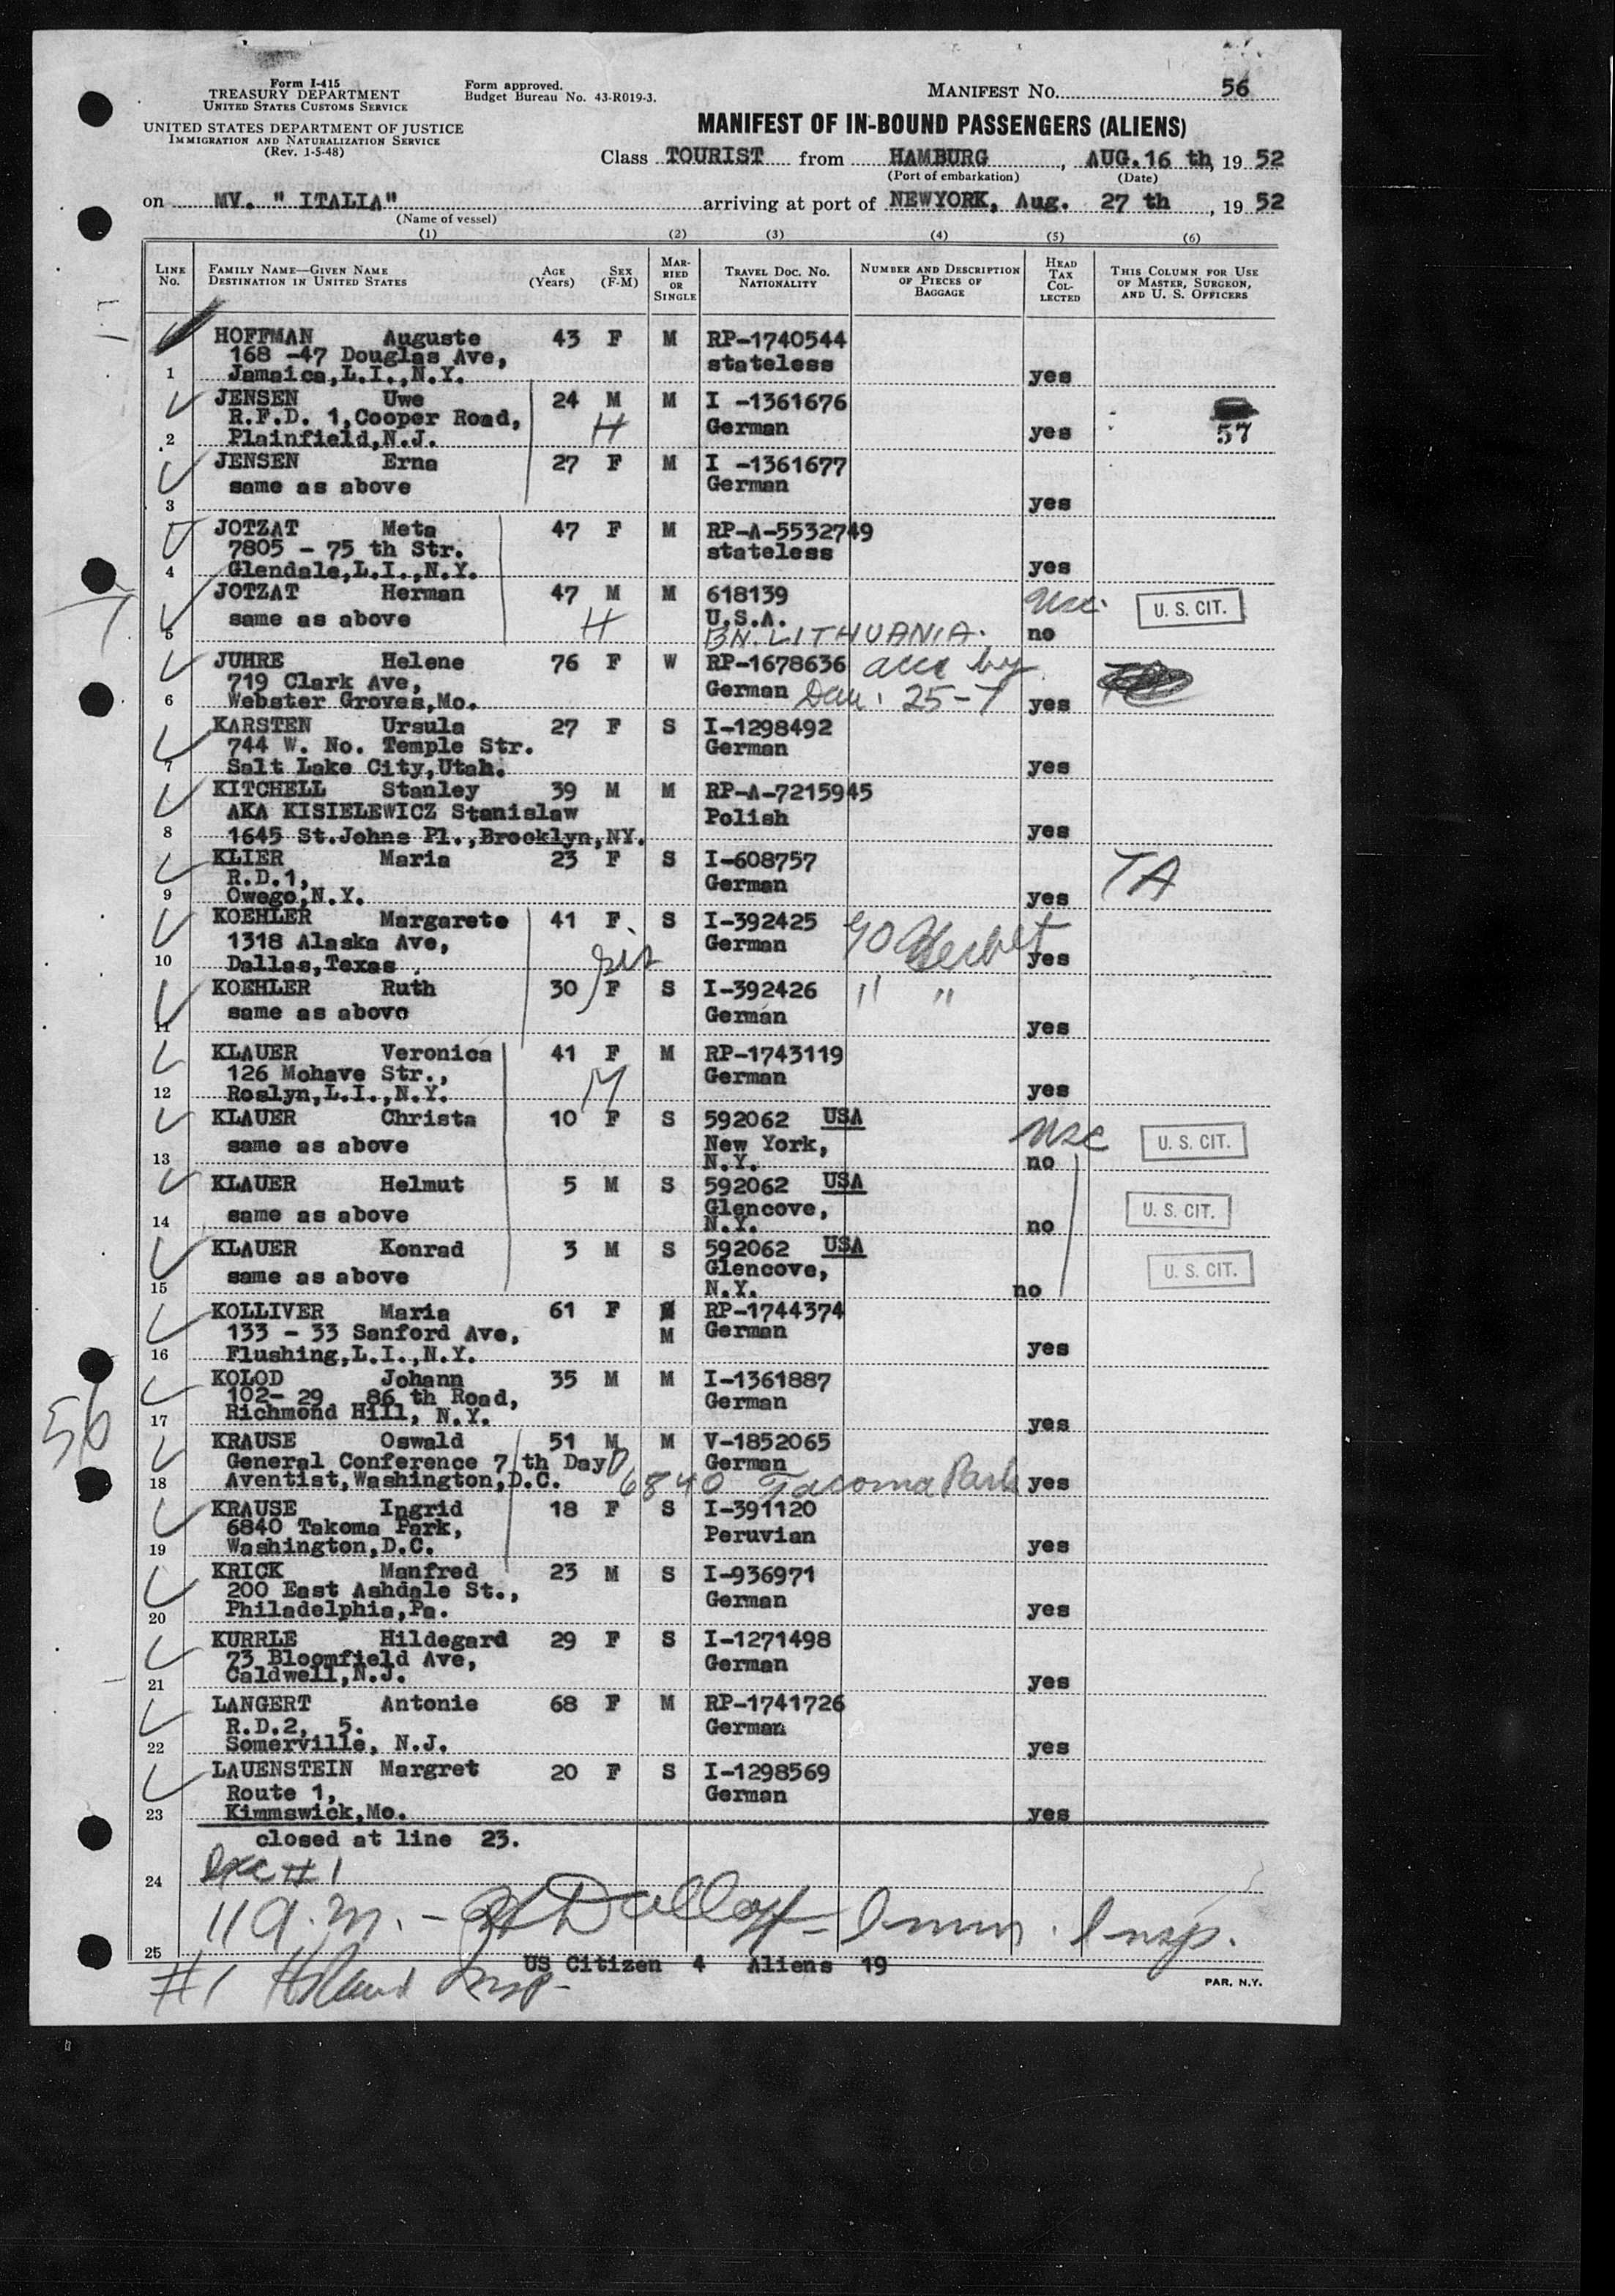 Form I-415
TREASURY DEPARTMENT
UNITED STATES CUSTOMS SERVICE
UNITED STATES DEPARTMENT OF JUSTICE
IMMIGRATION AND NATURALIZATION SERVICE
(Rev. 1-5-48)
Form approved.
Budget Bureau No. 43-R019-3.
MANIFEST NO. 56
MANIFEST OF IN-BOUND PASSENGERS (ALIENS)
Class TOURIST from HAMBURG, AUG. 16 th, 19 52
(Port of embarkation) (Date)
on MV. " ITALIA" arriving at port of NEWYORK, Aug. 27 th, 19 52
(Name of vessel)
(1) (2) (3) (4) (5) (6)
LINE No. FAMILY NAME—GIVEN NAME DESTINATION IN UNITED STATES AGE (Years) SEX (F-M) MARRIED OR SINGLE TRAVEL DOC. NO. NATIONALITY NUMBER AND DESCRIPTION OF PIECES OF BAGGAGE HEAD TAX COLLECTED THIS COLUMN FOR USE OF MASTER, SURGEON, AND U. S. OFFICERS
HOFFMAN Auguste 43 F M RP-1740544
168 -47 Douglas Ave, stateless
1 Jamaica,L.I.,N.Y. yes
JENSEN Uwe 24 M M I -1361676
R.F.D. 1,Cooper Road, H German 57
2 Plainfield,N.J. yes
JENSEN Erna 27 F M I -1361677
same as above German
3 yes
JOTZAT Meta 47 F M RP-A-5532749
7805 - 75 th Str. stateless
4 Glendale,L.I.,N.Y. yes
JOTZAT Herman 47 M M 618139 usc. U. S. CIT.
same as above H U.S.A.
5 BN. LITHUANIA. no
JUHRE Helene 76 F W RP-1678636 acc by
719 Clark Ave, German Dau. 25-7
6 Webster Groves,Mo. yes
KARSTEN Ursula 27 F S I-1298492
744 W. No. Temple Str. German
7 Salt Lake City,Utah. yes
KITCHELL Stanley 39 M M RP-A-7215945
AKA KISIELEWICZ Stanislaw Polish
8 1645 St.Johns Pl.,Brooklyn,NY. yes
KLIER Maria 23 F S I-608757 TA
R.D.1, German
9 Owego,N.Y. yes
KOEHLER Margarete 41 F S I-392425
1318 Alaska Ave, sis German
10 Dallas,Texas yes
KOEHLER Ruth 30 F S I-392426 " "
same as above German
11 yes
KLAUER Veronica 41 F M RP-1743119
126 Mohave Str., M German
12 Roslyn,L.I.,N.Y. yes
KLAUER Christa 10 F S 592062 USA usc U. S. CIT.
same as above New York,
13 N.Y. no
KLAUER Helmut 5 M S 592062 USA U. S. CIT.
same as above Glencove,
14 N.Y. no
KLAUER Konrad 3 M S 592062 USA U. S. CIT.
same as above Glencove,
15 N.Y. no
KOLLIVER Maria 61 F RP-1744374
133 - 33 Sanford Ave, M German
16 Flushing,L.I.,N.Y. yes
KOLOD Johann 35 M M I-1361887
102- 29 86 th Road, German
17 Richmond Hill, N.Y. yes
56
KRAUSE Oswald 51 M M V-1852065
General Conference 7 th Day German
18 Aventist,Washington,D.C. 6840 Tacoma Park yes
KRAUSE Ingrid 18 F S I-391120
6840 Takoma Park, Peruvian
19 Washington,D.C. yes
KRICK Manfred 23 M S I-936971
200 East Ashdale St., German
20 Philadelphia,Pa. yes
KURRLE Hildegard 29 F S I-1271498
73 Bloomfield Ave, German
21 Caldwell,N.J. yes
LANGERT Antonie 68 F M RP-1741726
R.D.2, 5. German
22 Somerville, N.J. yes
LAUENSTEIN Margret 20 F S I-1298569
Route 1, German
23 Kimmswick,Mo. yes
closed at line 23.
24 Exc #1
11 a.m. - Imm. Insp.
25
US Citizen 4 Aliens 19
#1 Insp.
PAR, N.Y.